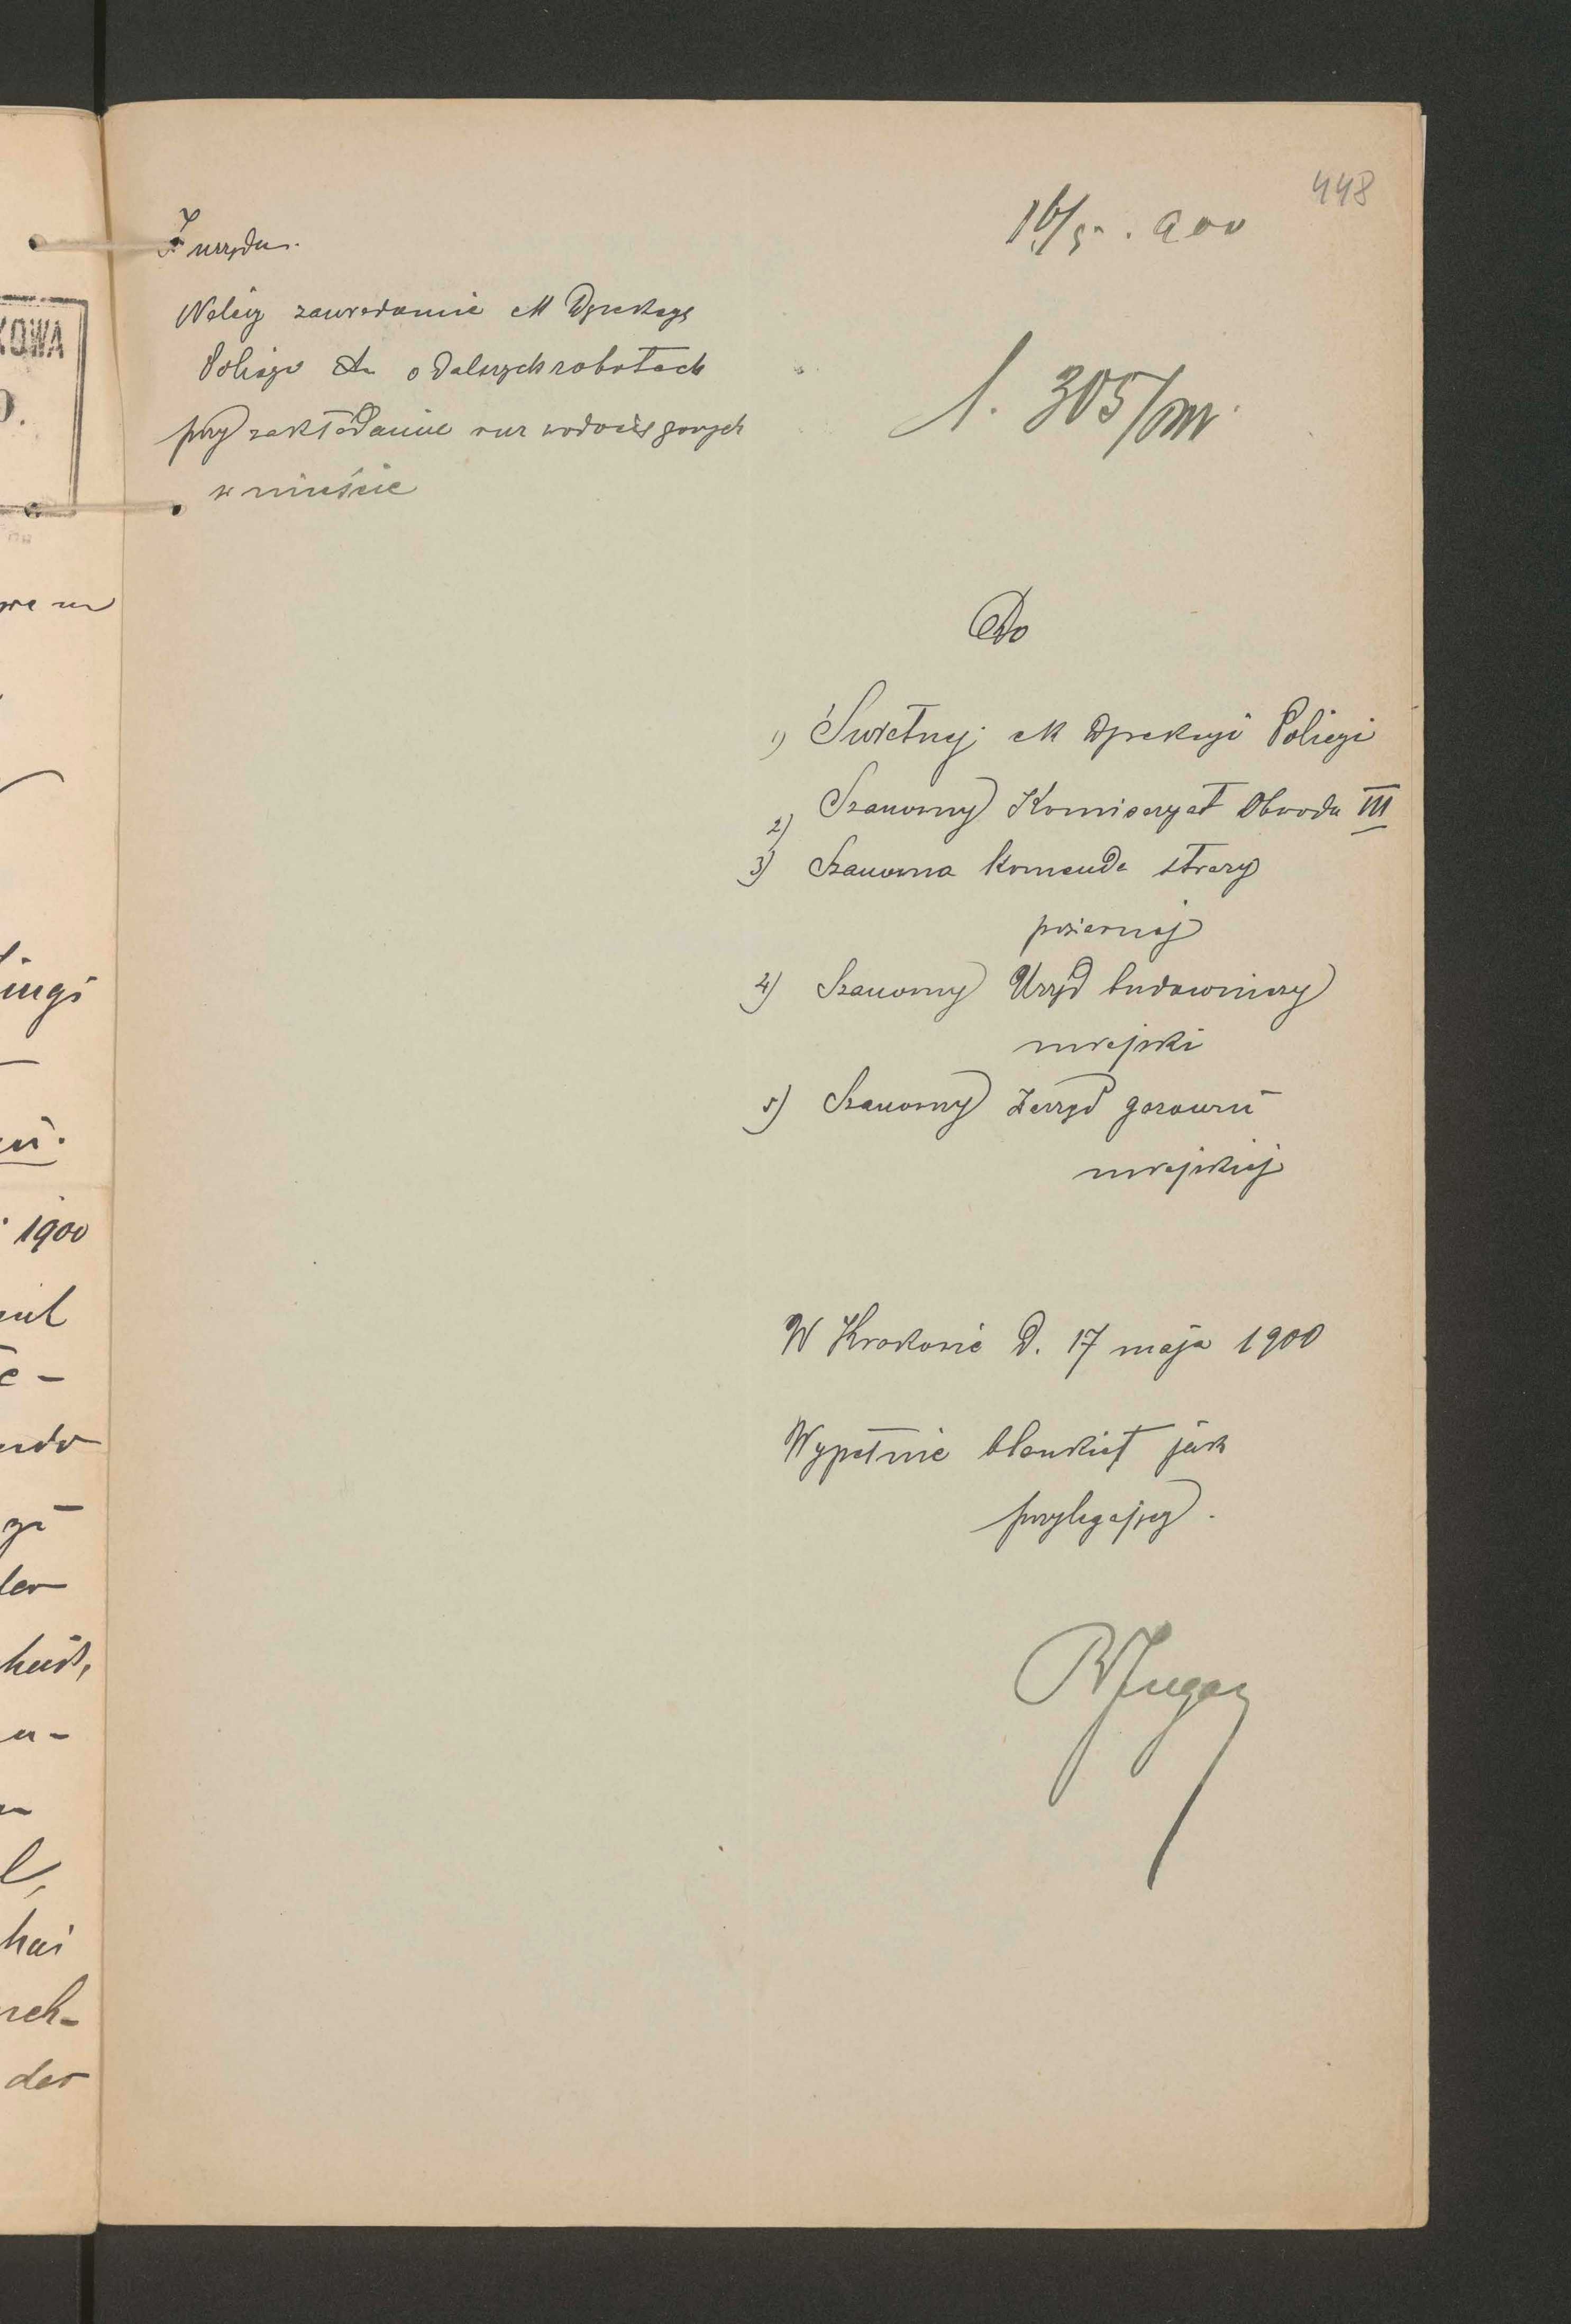 448
16/5. 900
Z urzędu.
Należy zawiadomić ck Dyrekcyę
Policyi o dalszych robotach
przy zakładaniu rur wodociągowych
w mieście
l. 305/
Do
1) Świetnej ck Dyrekcyi Policyi
2) Szanowny Komisaryat Obwodu III
3) Szanowna Komenda straży
pożarnej
4) Szanowny Urząd budowniczy
miejski
5) Szanowny Zarząd gazowni
miejskiej
W Krakowie d. 17 maja 1900
Wypełnić blankiet jak
przylegający.
KOWA
1900
der